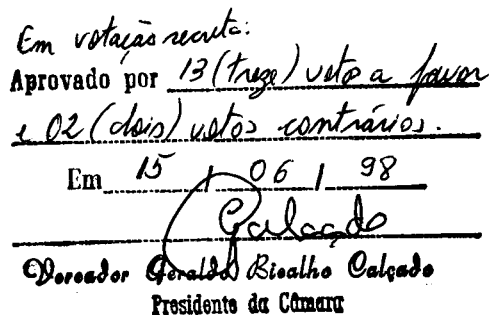 Em votação secreta:
Aprovado por 13 (treze) votos a favor
e 02 (dois) votos contrários.
Em 15 / 06 / 98
Calçado
Vereador Geraldo Bicalho Calçado
Presidente da Câmara